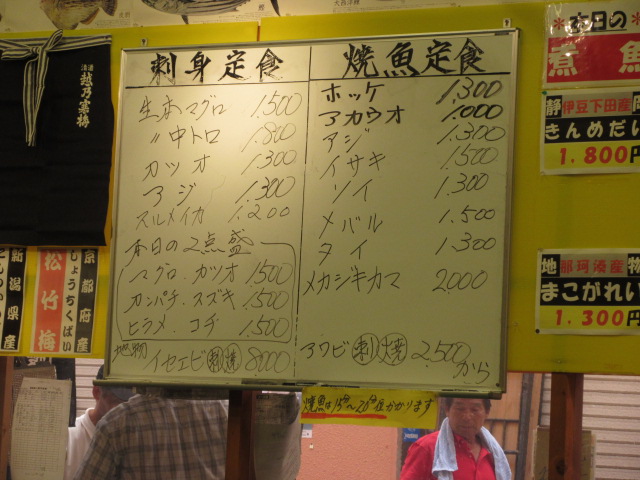 刺身定食
生本マグロ 1.500
〃中トロ 1.800
カツオ 1.300
アジ 1.300
スルメイカ 1.200
本日の2点盛
マグロ.カツオ 1500
カンパチ.スズキ 1.500
ヒラメ.コチ 1.500
地物 イセエビ 刺 焼 8000
焼魚定食
ホッケ 1,300
アカウオ 1.000
アジ 1.300
イサキ 1.500
ソイ 1.300
メバル 1.500
タイ 1.300
メカジキカマ 2000
アワビ 刺 焼 2.500から
焼魚は15分〜20分位かかります
本日の
煮魚
静 伊豆下田産
きんめだい
1.800円
地 那珂湊産 物
まこがれい
1.300円
越乃寒梅
新潟県産
松竹梅
しょうちくばい
京都府産